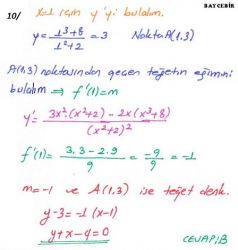 BAYCEBİR
10/ x=1 için y'yi bulalım.
y = (1³+8)/(1²+2) = 3 Nokta A(1,3)
A(1,3) noktasından geçen teğetin eğimini
bulalım ⇒ f'(1)=m
y' = (3x².(x²+2) - 2x(x³+8))/(x²+2)²
f'(1) = (3.3-2.9)/9 = -9/9 = -1
m=-1 ve A(1,3) ise teğet denk.
y-3=-1(x-1)
y+x-4=0
CEVAP:B